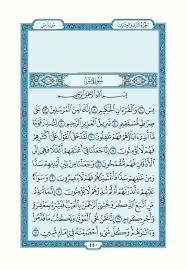 الجزء الثاني والعشرون سورة يس
سورة يس
بسم الله الرحمن الرحيم
يس ١ والقرءان الحكيم ٢ إنك لمن المرسلين ٣ على
صراط مستقيم ٤ تنزيل العزيز الرحيم ٥ لتنذر قوما
ما أنذر ءاباؤهم فهم غافلون ٦ لقد حق القول على أكثرهم
فهم لا يؤمنون ٧ إنا جعلنا في أعناقهم أغلالا فهي إلى
الأذقان فهم مقمحون ٨ وجعلنا من بين أيديهم سدا
ومن خلفهم سدا فأغشيناهم فهم لا يبصرون ٩ وسواء
عليهم ءأنذرتهم أم لم تنذرهم لا يؤمنون ١٠ إنما تنذر
من اتبع الذكر وخشي الرحمن بالغيب فبشره بمغفرة
وأجر كريم ١١ إنا نحن نحي الموتى ونكتب ما قدموا
وءاثارهم وكل شيء أحصيناه في إمام مبين ١٢
٤٤٠